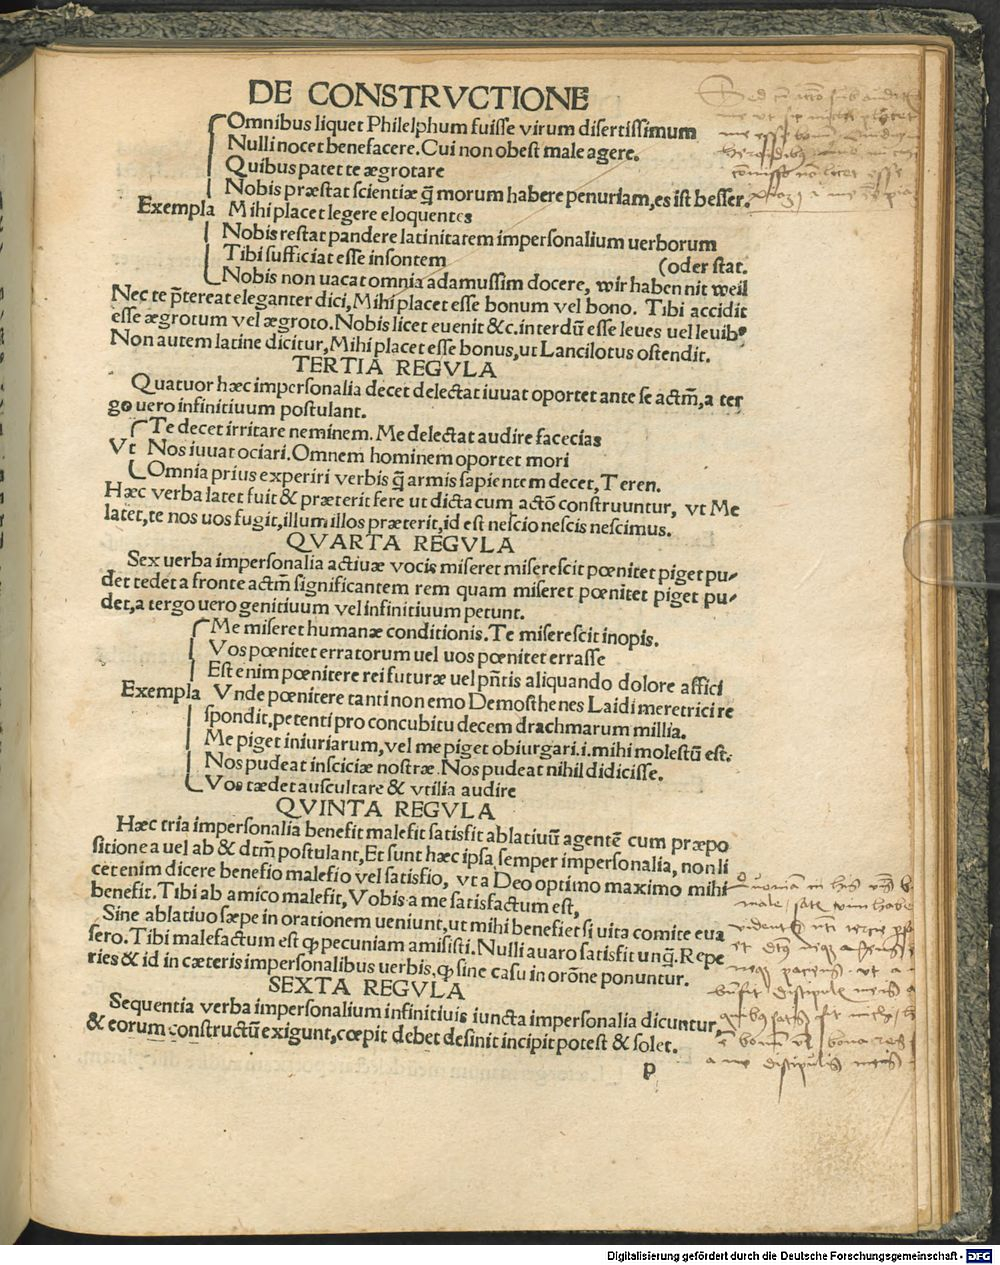 DE CONSTRVCTIONE
Omnibus liquet Philelphum fuiſſe virum diſertiſſimum
Nulli nocet benefacere. Cui non obeſt male agere.
Quibus patet te ægrotare
Nobis præſtat ſcientiæ q̃ morum habere penuriam, es iſt beſſer.
Exempla Mihi placet legere eloquentes
Nobis reſtat pandere latinitatem imperſonalium uerborum
Tibi ſufficiat eſſe inſontem (oder ſtat.
Nobis non uacat omnia adamuſſim docere, wir haben nit weil
Nec te p̃tereat eleganter dici, Mihi placet eſſe bonum vel bono. Tibi accidit
eſſe ægrotum vel ægroto. Nobis licet euenit &c. interdū eſſe leues uel leuibꝰ
Non autem latine dicitur, Mihi placet eſſe bonus, ut Lancilotus oſtendit.
TERTIA REGVLA
Quatuor hæc imperſonalia decet delectat iuuat oportet ante ſe actm̃, a ter
go uero infinitiuum poſtulant.
Te decet irritare neminem. Me delectat audire facecias
Vt Nos iuuat ociari. Omnem hominem oportet mori
Omnia prius experiri verbis q̃ armis ſapientem decet, Teren.
Hæc verba latet fuit & præterit fere ut dicta cum actō conſtruuntur, vt Me
latet, te nos uos fugit, illum illos præterit, id eſt neſcio neſcis neſcimus.
QVARTA REGVLA
Sex uerba imperſonalia actiuæ vocis miſeret miſereſcit pœnitet piget pu⸗
det tedet a fronte actm̃ ſignificantem rem quam miſeret pœnitet piget pu⸗
det, a tergo uero genitiuum vel infinitiuum petunt.
Me miſeret humanæ conditionis. Te miſereſcit inopis.
Vos pœnitet erratorum uel uos pœnitet erraſſe
Eſt enim pœnitere rei futuræ uel pñtis aliquando dolore affici
Exempla Vnde pœnitere tanti non emo Demoſthenes Laidi meretrici re
ſpondit, petenti pro concubitu decem drachmarum millia.
Me piget iniuriarum, vel me piget obiurgari .i. mihi moleſtū eſt.
Nos pudeat inſciciæ noſtræ. Nos pudeat nihil didiciſſe.
Vos tædet auſcultare & vtilia audire
QVINTA REGVLA
Hæc tria imperſonalia benefit malefit ſatiſfit ablatiuū agentē cum præpo
ſitione a uel ab & dtm̃ poſtulant, Et ſunt hæc ipſa ſemper imperſonalia, non li
cet enim dicere benefio malefio vel ſatiſfio, vt a Deo optimo maximo mihi
benefit. Tibi ab amico malefit, Vobis a me ſatiſfactum eſt,
Sine ablatiuo ſæpe in orationem ueniunt, ut mihi benefiet ſi vita comite eua
ſero. Tibi malefactum eſt ꝙ pecuniam amiſiſti. Nulli auaro ſatiſfit unq̃. Repe
ries & id in cæteris imperſonalibus uerbis, ꝙ ſine caſu in orōne ponuntur.
SEXTA REGVLA
Sequentia verba imperſonalium infinitiuis iuncta imperſonalia dicuntur,
& eorum conſtructū exigunt, cœpit debet deſinit incipit poteſt & ſolet.
p
Digitalisierung gefördert durch die Deutsche Forschungsgemeinschaft - DFG